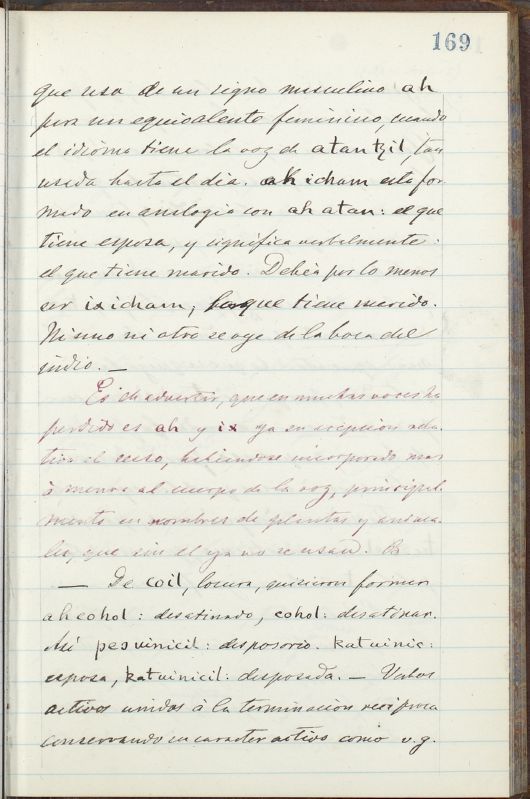 169
que usa de un signo masculino ah
para un equivalente feminino, cuando
el idioma tiene la voz de atantzil, tan
usada hasta el dia. ah icham esta for
mado en analogia con ah atan: el que
tiene esposa, y significa verbalmente:
el que tiene marido. Debia por lo menos
ser ix icham, la que tiene marido.
Ni uno ni otro se oye de la boca del
indio. —
Es de advertir, que en muchas voces ha
perdido es ah y ix ya su acepcion rela
tiva al secso, habiendose incorporado mas
ó menos al cuerpo de la voz, principal
mente en nombres de plantas y anima
les, que sin el ya no se usan. B
— De coil, locura, quisieron formar
ah cohol: desatinado, cohol: desatinar.
Asi pesuinicil: desposorio. katuinic:
esposa, katuinicil: desposada. — Verbos
activos unidos à la terminacion reciproca
conservando su caracter activo como v.g.